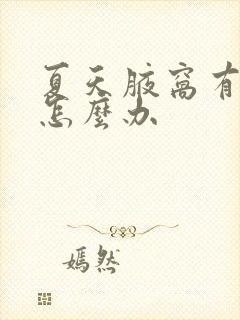 夏天腋窝有
怎麼办
嫣然